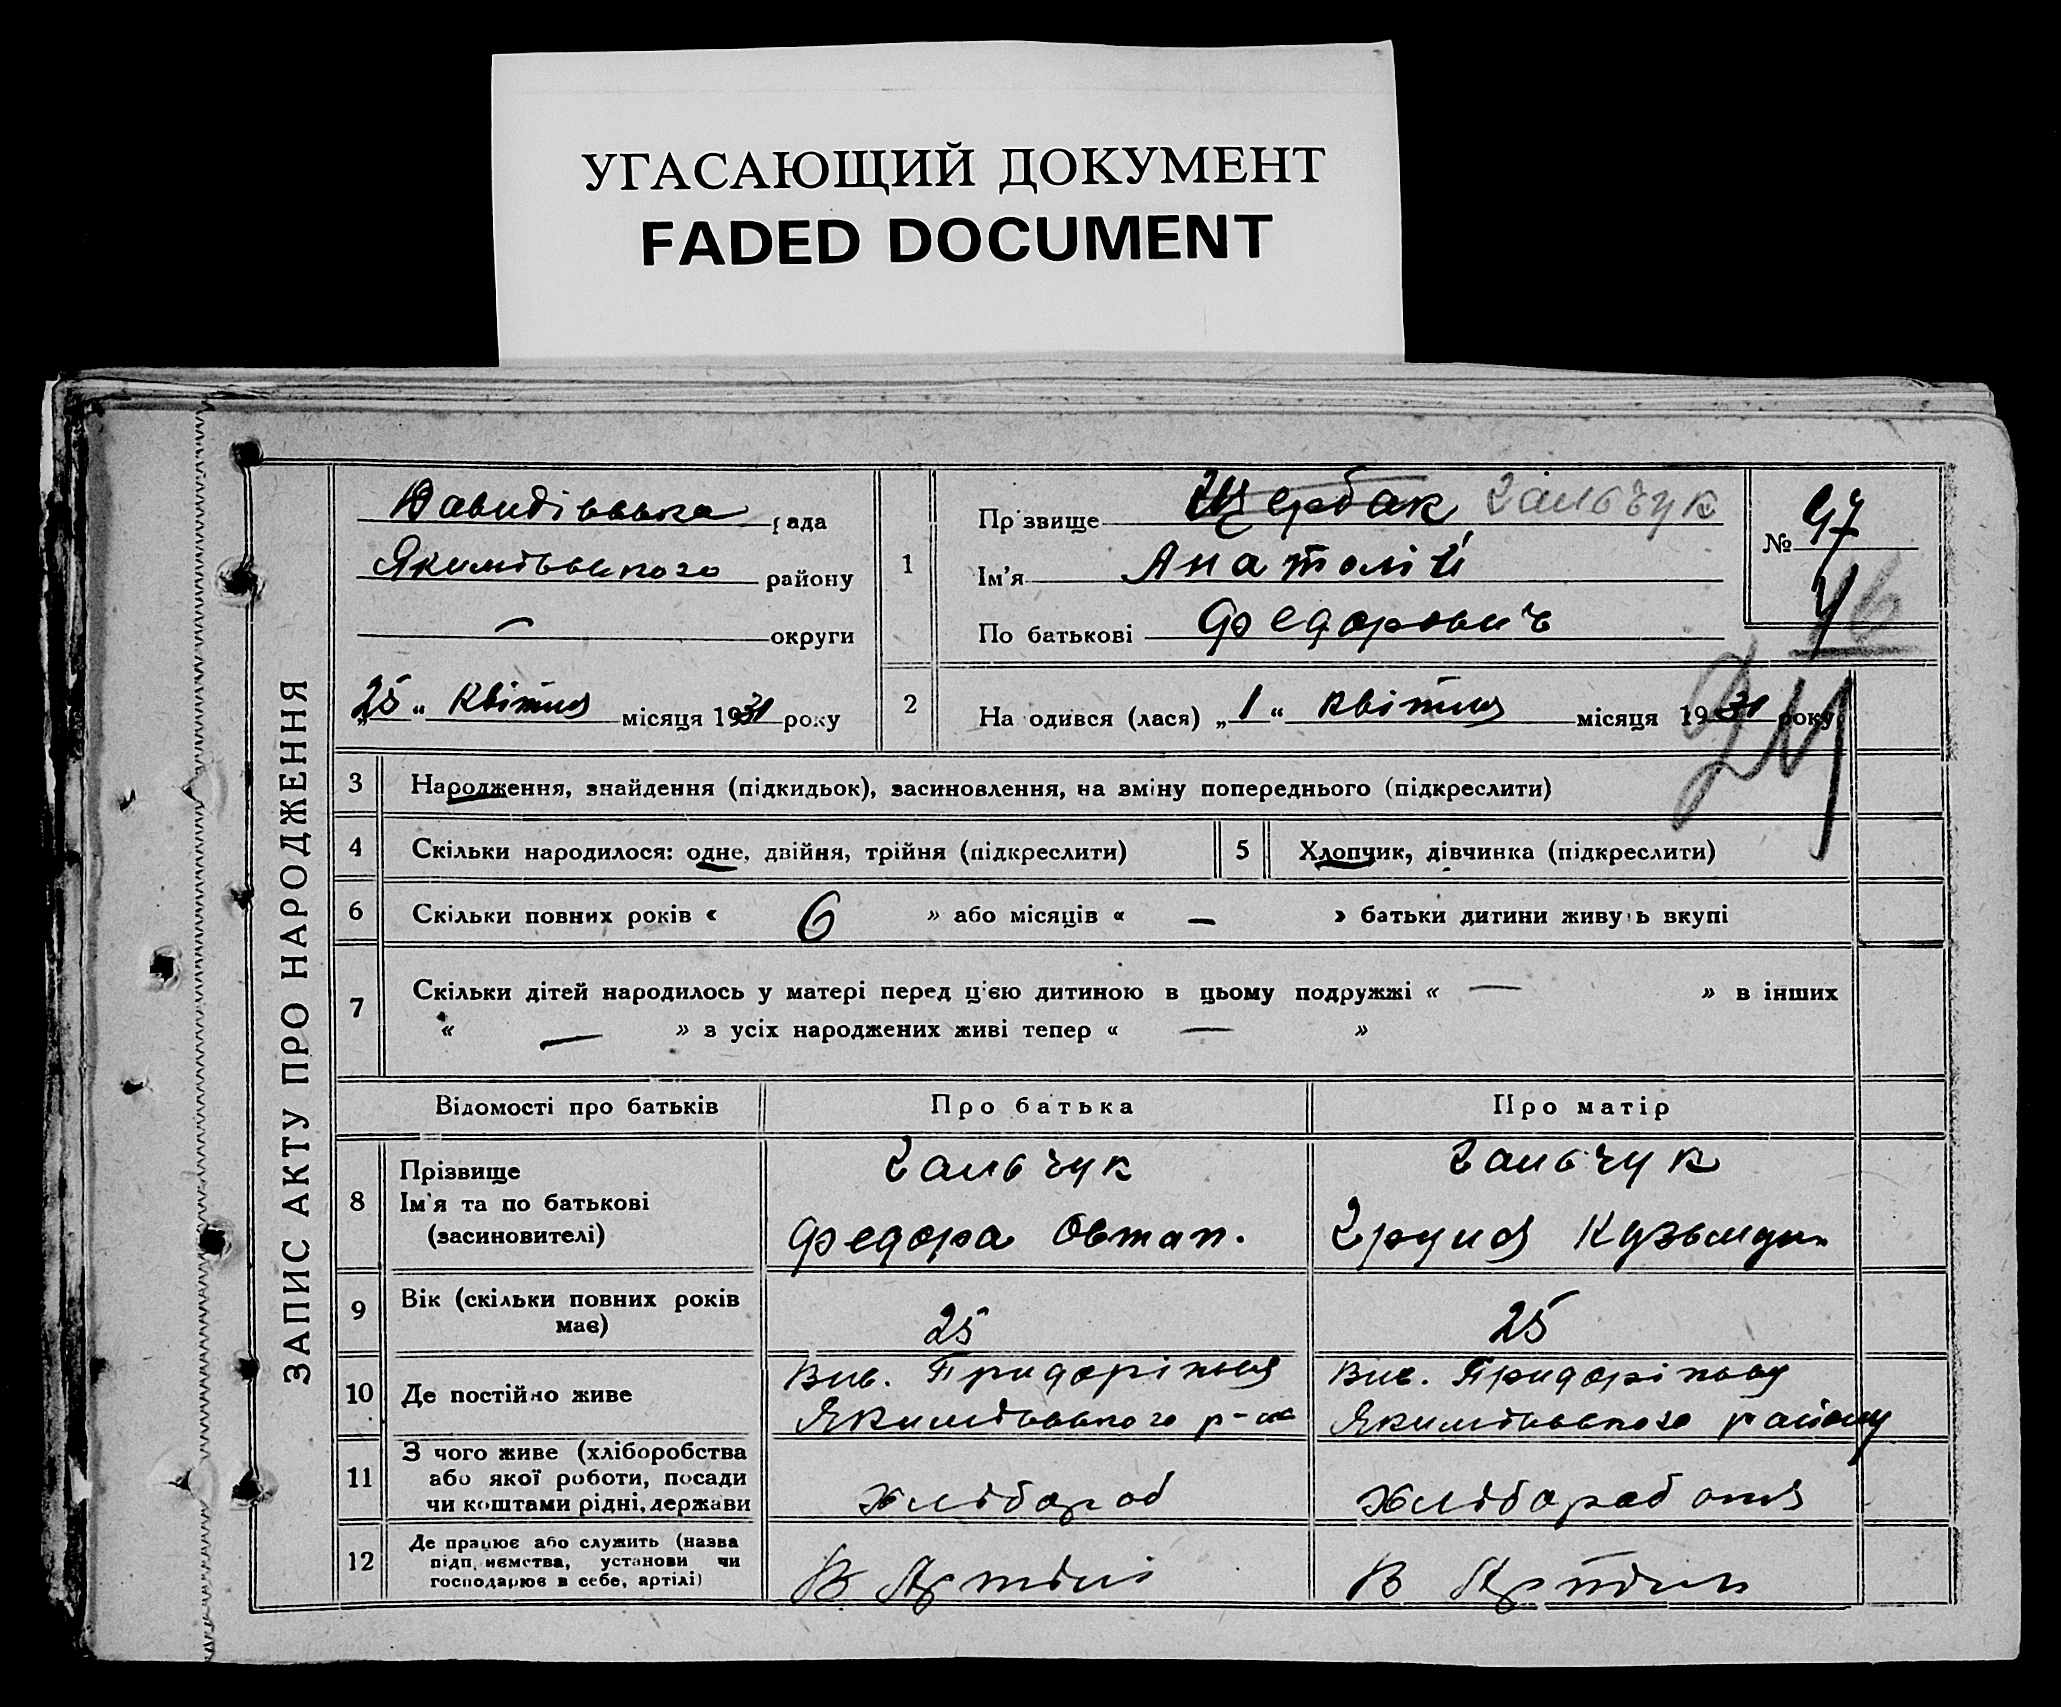 УГАСАЮЩИЙ ДОКУМЕНТ
FADED DOCUMENT
ЗАПИС АКТУ ПРО НАРОДЖЕННЯ
Давидівська рада
Якимівського району
— округи
„25“ квітня місяця 1931 року
1
Прізвище Щербак Гальчук
Ім'я Анатолій
По батькові Федорович
№ 97
46
2 Народився (лася) „1“ квітня місяця 1931 року
3 Народження, знайдення (підкидьок), засиновлення, на зміну попереднього (підкреслити)
4 Скільки народилося: одне, двійня, трійня (підкреслити)
5 Хлопчик, дівчинка (підкреслити)
6 Скільки повних років « 6 » або місяців « — » батьки дитини живуть вкупі
7 Скільки дітей народилось у матері перед цією дитиною в цьому подружжі « — » в інших
« — » з усіх народжених живі тепер « — »
Відомості про батьків
Про батька
Про матір
8 Прізвище
Ім'я та по батькові
(засиновителі)
Гальчук
Федора Овтап.
Гальчук
Груня
9 Вік (скільки повних років
має)
25
25
10 Де постійно живе
Якимівського р-на
Якимівського району
11 З чого живе (хліборобства
або якої роботи, посади
чи коштами рідні, держави
хлібороб
12 Де працює або служить (назва
підприємства, установи чи
господарює в себе, артілі)
В Артілі
В Артіли